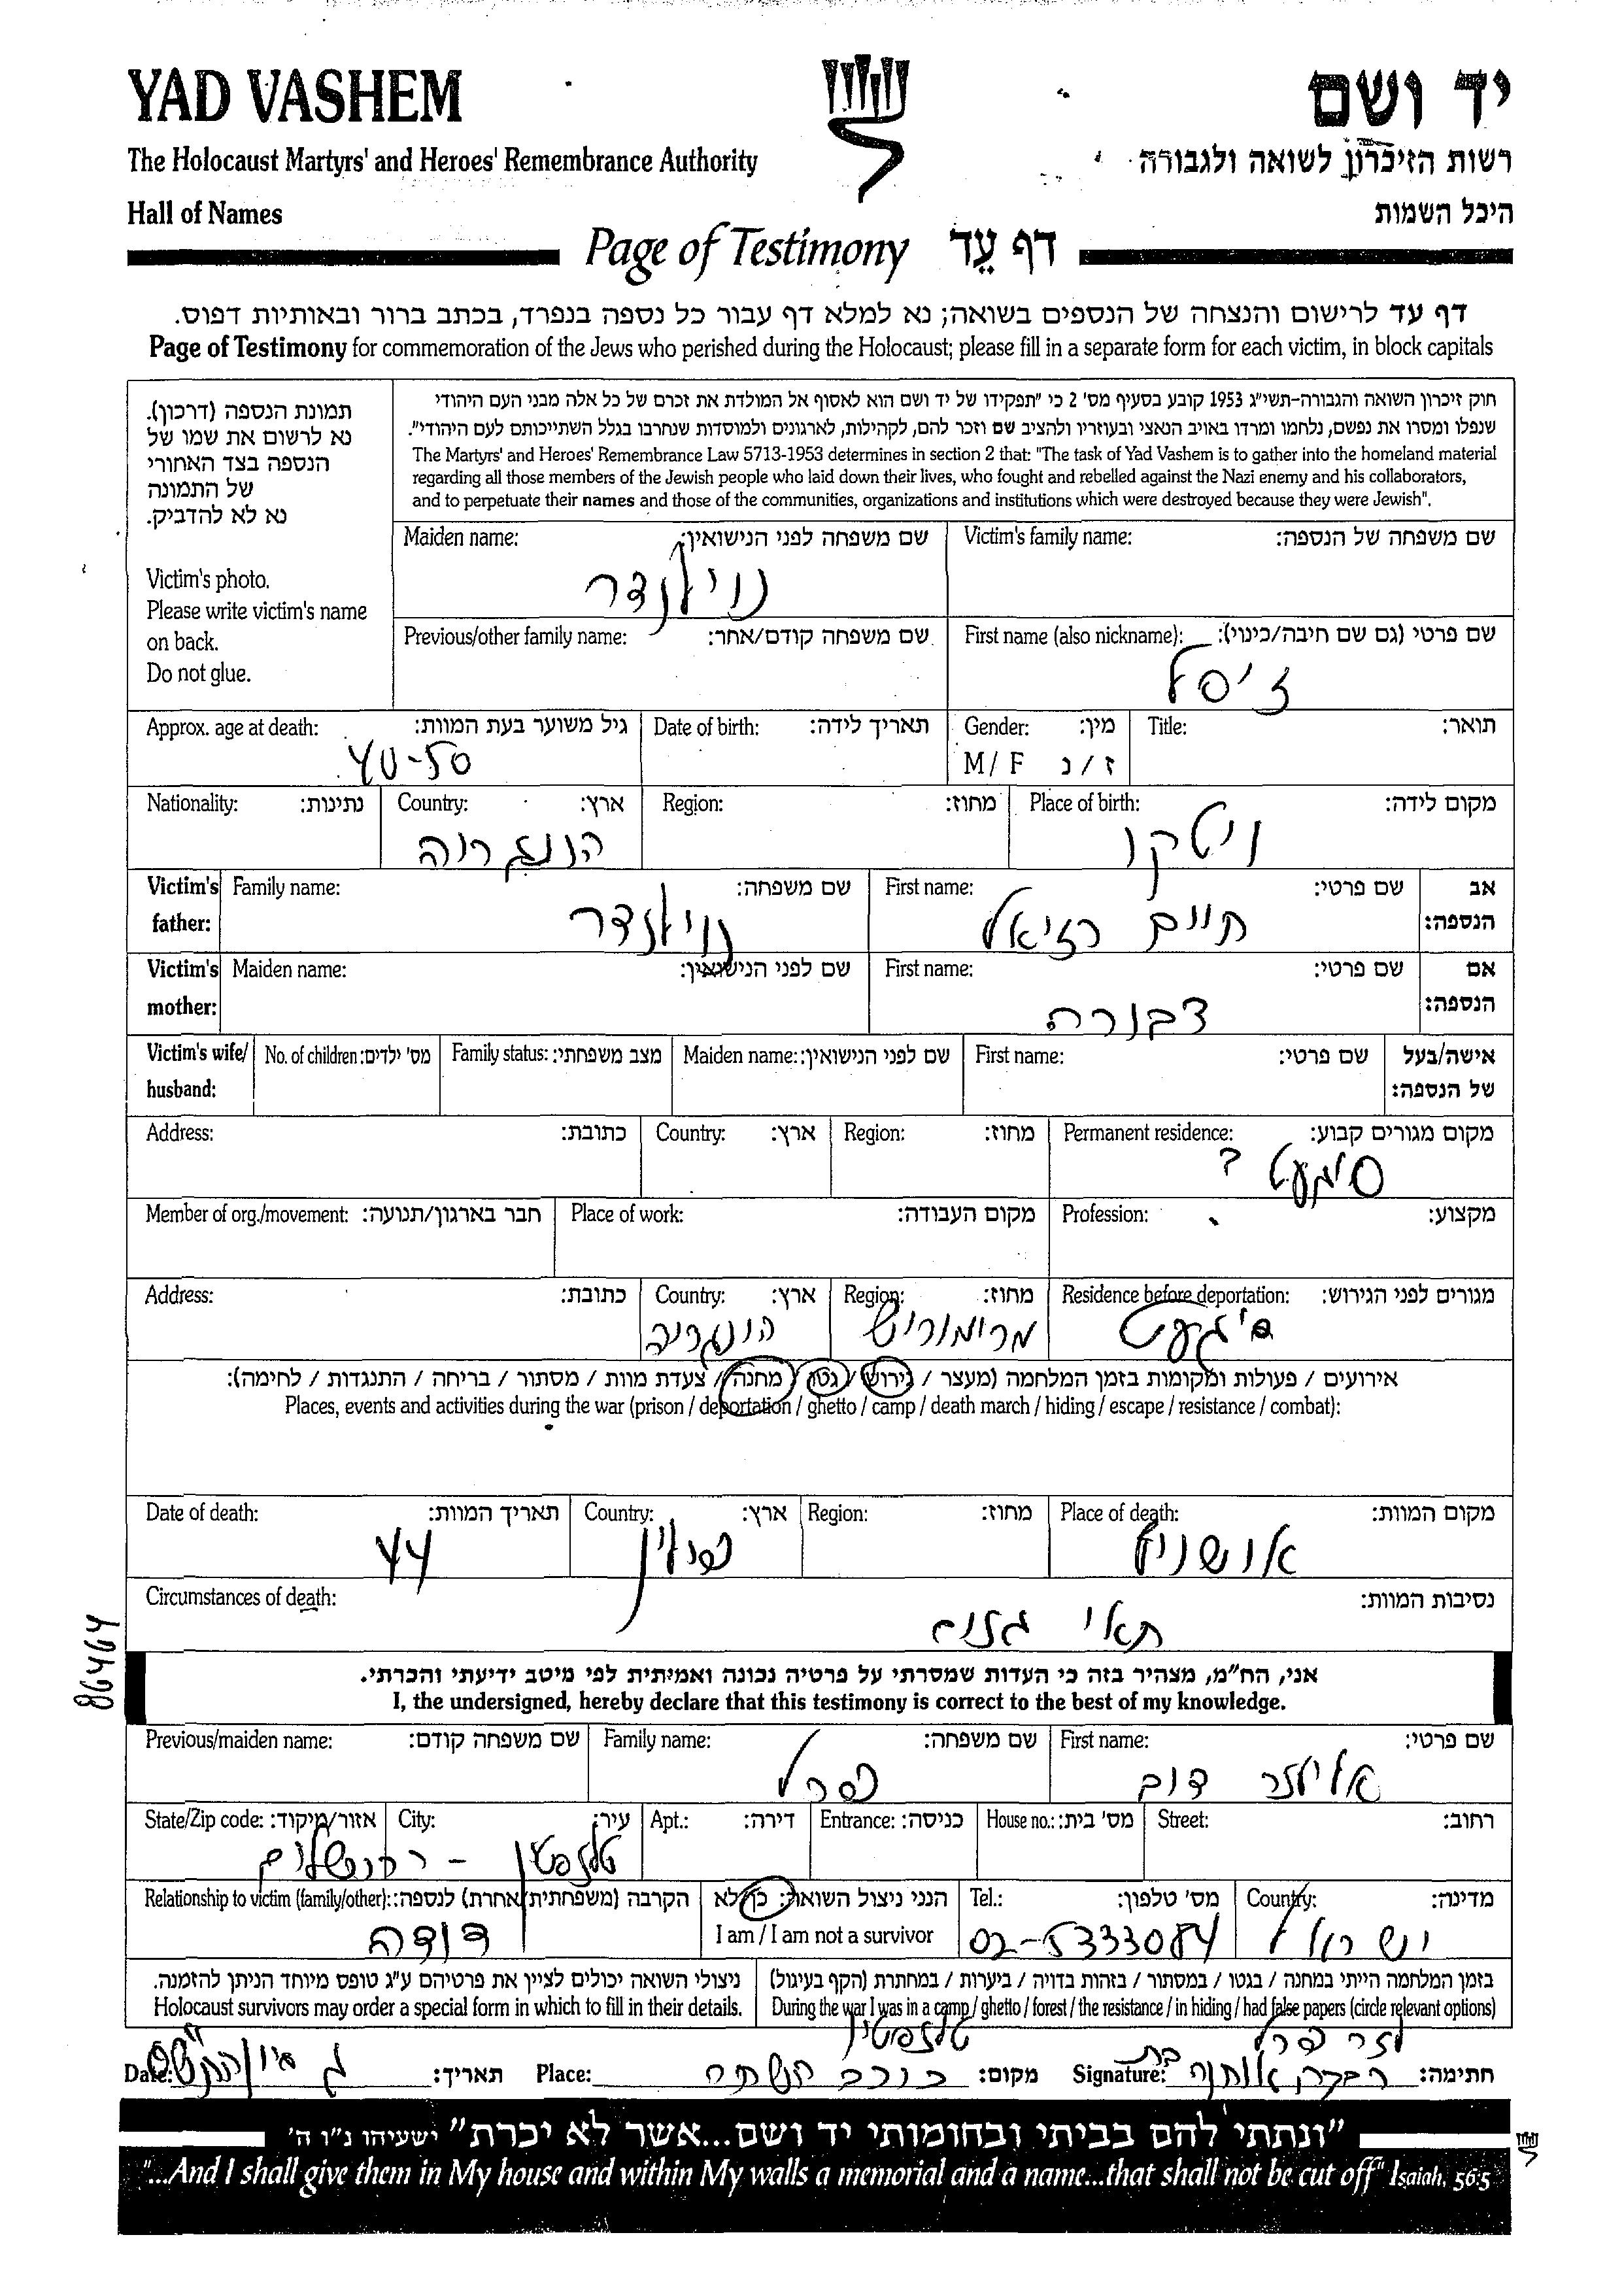 YAD VASHEM
יד ושם
The Holocaust Martyrs' and Heroes' Remembrance Authority
רשות הזיכרון לשואה ולגבורה
Hall of Names
היכל השמות
Page of Testimony דף עֵד
דף עד לרישום והנצחה של הנספים בשואה; נא למלא דף עבור כל נספה בנפרד, בכתב ברור ובאותיות דפוס.
Page of Testimony for commemoration of the Jews who perished during the Holocaust; please fill in a separate form for each victim, in block capitals
תמונת הנספה (דרכון).
נא לרשום את שמו של
הנספה בצד האחורי
של התמונה
נא לא להדביק.
Victim's photo.
Please write victim's name
on back.
Do not glue.
חוק זיכרון השואה והגבורה-תשי"ג 1953 קובע בסעיף מס' 2 כי "תפקידו של יד ושם הוא לאסוף אל המולדת את זכרם של כל אלה מבני העם היהודי
שנפלו ומסרו את נפשם, נלחמו ומרדו באויב הנאצי ובעוזריו ולהציב שם וזכר להם, לקהילות, לארגונים ולמוסדות שנחרבו בגלל השתייכותם לעם היהודי".
The Martyrs' and Heroes' Remembrance Law 5713-1953 determines in section 2 that: "The task of Yad Vashem is to gather into the homeland material
regarding all those members of the Jewish people who laid down their lives, who fought and rebelled against the Nazi enemy and his collaborators,
and to perpetuate their names and those of the communities, organizations and institutions which were destroyed because they were Jewish".
Victim's family name: שם משפחה של הנספה:
Maiden name: שם משפחה לפני הנישואין:
נוילנדר
First name (also nickname): שם פרטי (גם שם חיבה/כינוי):
ז'יסל
Previous/other family name: שם משפחה קודם/אחר:
Title: תואר:
Gender: מין:
M / F ז / נ
Date of birth: תאריך לידה:
Approx. age at death: גיל משוער בעת המוות:
40-50
Place of birth: מקום לידה:
ויטקו
Region: מחוז:
Country: ארץ:
הונגריה
Nationality: נתינות:
Victim's father: אב הנספה:
First name: שם פרטי:
חיים רזיאל
Family name: שם משפחה:
נוילנדר
Victim's mother: אם הנספה:
First name: שם פרטי:
דבורה
Maiden name: שם לפני הנישואין:
Victim's wife/ husband: אישה/בעל של הנספה:
First name: שם פרטי:
Maiden name: שם לפני הנישואין:
Family status: מצב משפחתי:
No. of children: מס' ילדים:
Permanent residence: מקום מגורים קבוע:
סיגעט ?
Region: מחוז:
Country: ארץ:
Address: כתובת:
Profession: מקצוע:
Place of work: מקום העבודה:
Member of org./movement: חבר בארגון/תנועה:
Residence before deportation: מגורים לפני הגירוש:
סיגעט
Region: מחוז:
מרימוריש
Country: ארץ:
הונגריה
Address: כתובת:
אירועים / פעולות ומקומות בזמן המלחמה (מעצר / גירוש / גטו / מחנה / צעדת מוות / מסתור / בריחה / התנגדות / לחימה):
Places, events and activities during the war (prison / deportation / ghetto / camp / death march / hiding / escape / resistance / combat):
Place of death: מקום המוות:
אושוויץ
Region: מחוז:
Country: ארץ:
פולין
Date of death: תאריך המוות:
44
Circumstances of death: נסיבות המוות:
תאי גזים
86464
אני, הח"מ, מצהיר בזה כי העדות שמסרתי על פרטיה נכונה ואמיתית לפי מיטב ידיעתי והכרתי.
I, the undersigned, hereby declare that this testimony is correct to the best of my knowledge.
First name: שם פרטי:
אליעזר דוב
Family name: שם משפחה:
פרל
Previous/maiden name: שם משפחה קודם:
Street: רחוב:
House no.: מס' בית:
Entrance: כניסה:
Apt.: דירה:
City: עיר:
State/Zip code: אזור/מיקוד:
טלזסטון - ירושלים
Country: מדינה:
ישראל
Tel.: מס' טלפון:
02-5333084
הנני ניצול השואה: כן/לא
I am / I am not a survivor
Relationship to victim (family/other): הקרבה (משפחתית/אחרת) לנספה:
דודה
בזמן המלחמה הייתי במחנה / בגטו / במסתור / בזהות בדויה / ביערות / במחתרת (הקף בעיגול)
During the war I was in a camp / ghetto / forest / the resistance / in hiding / had false papers (circle relevant options)
ניצולי השואה יכולים לציין את פרטיהם ע"ג טופס מיוחד הניתן להזמנה.
Holocaust survivors may order a special form in which to fill in their details.
Signature: חתימה:
Place: מקום:
טלזסטון
Date: תאריך:
"ונתתי להם בביתי ובחומותי יד ושם...אשר לא יכרת" ישעיהו נ"ו ה'
"...And I shall give them in My house and within My walls a memorial and a name...that shall not be cut off" Isaiah, 56:5